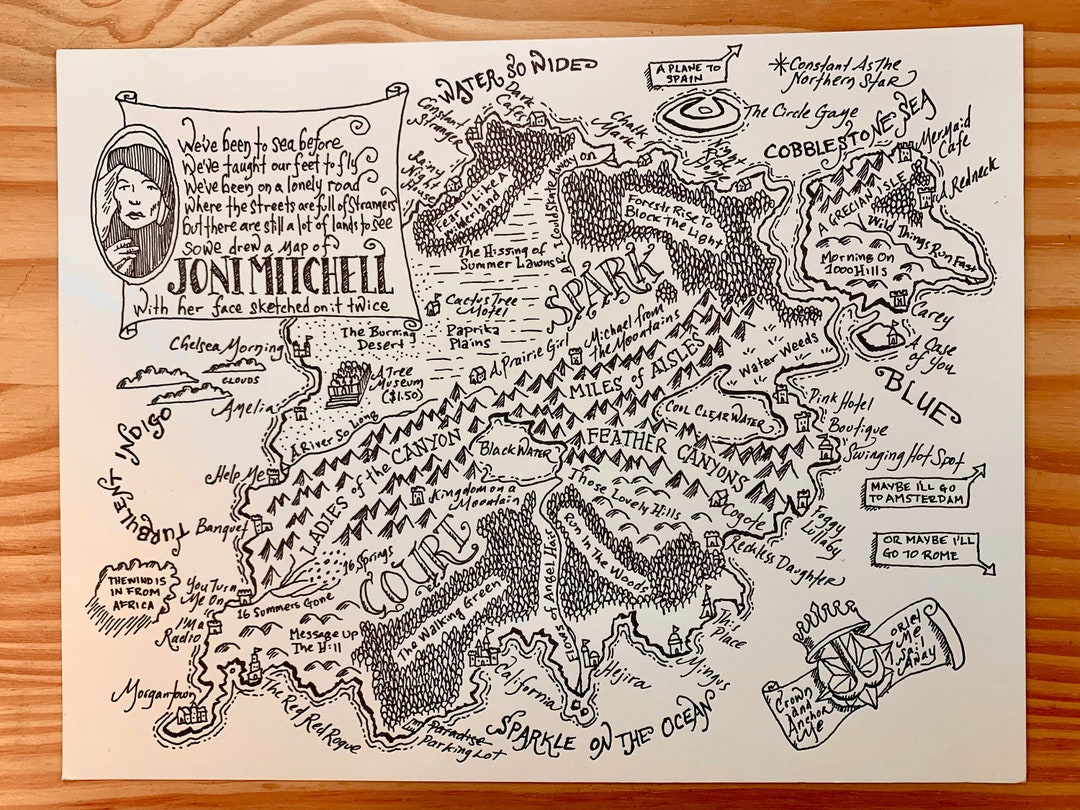 We've been to sea before
We've taught our feet to fly
We've been on a lonely road
Where the streets are full of strangers
but there are still a lot of lands to see
So we drew a map of
JONI MITCHELL
with her face sketched on it twice
WATER SO WIDE
A PLANE TO
SPAIN
Constant As The
Northern Star
The Circle Game
COBBLESTONE SEA
Constant
Stranger
Dark
Cafe
Chalk
Mark
Rainy
Night
House
Night
Ride
Home
Mermaid
Cafe
A Redneck
A GRECIAN ISLE
Wild Things Run Fast
Morning On
1000 Hills
Carey
A Case
of You
BLUE
Fear Is Like A
Wilderland
A River I Could Skate Away on
Forests Rise To
Block The Light
The Hissing of
Summer Lawns
SPARK
Cactus Tree
Motel
The Burning
Desert
Paprika
Plains
Chelsea Morning
CLOUDS
Amelia
A Tree
Museum
($1.50)
A Prairie Girl
Michael from
the Mountains
MILES of AISLES
Water Weeds
COOL CLEAR WATER
Pink Hotel
Boutique
Swinging Hot Spot
A River So Long
LADIES of the CANYON
BLACK WATER
FEATHER CANYONS
TURBULENT INDIGO
Help Me
Banquet
Kingdom on a
Mountain
Those Lovely Hills
Coyote
Foggy
Lullaby
MAYBE I'LL GO
TO AMSTERDAM
OR MAYBE I'LL
GO TO ROME
Reckless Daughter
THE WIND IS
IN FROM
AFRICA
You Turn
Me On
I'm a
Radio
16 Springs
16 Summers Gone
COURT
Message Up
The Hill
The Walking Green
Flows of Angel Hair
Run In The Woods
This
Place
Mingus
Hejira
California
Morgantown
The Red Red Rogue
Paradise
Parking Lot
SPARKLE ON THE OCEAN
Crown
and
Anchor
Me
Or let
Me
Sail
Away